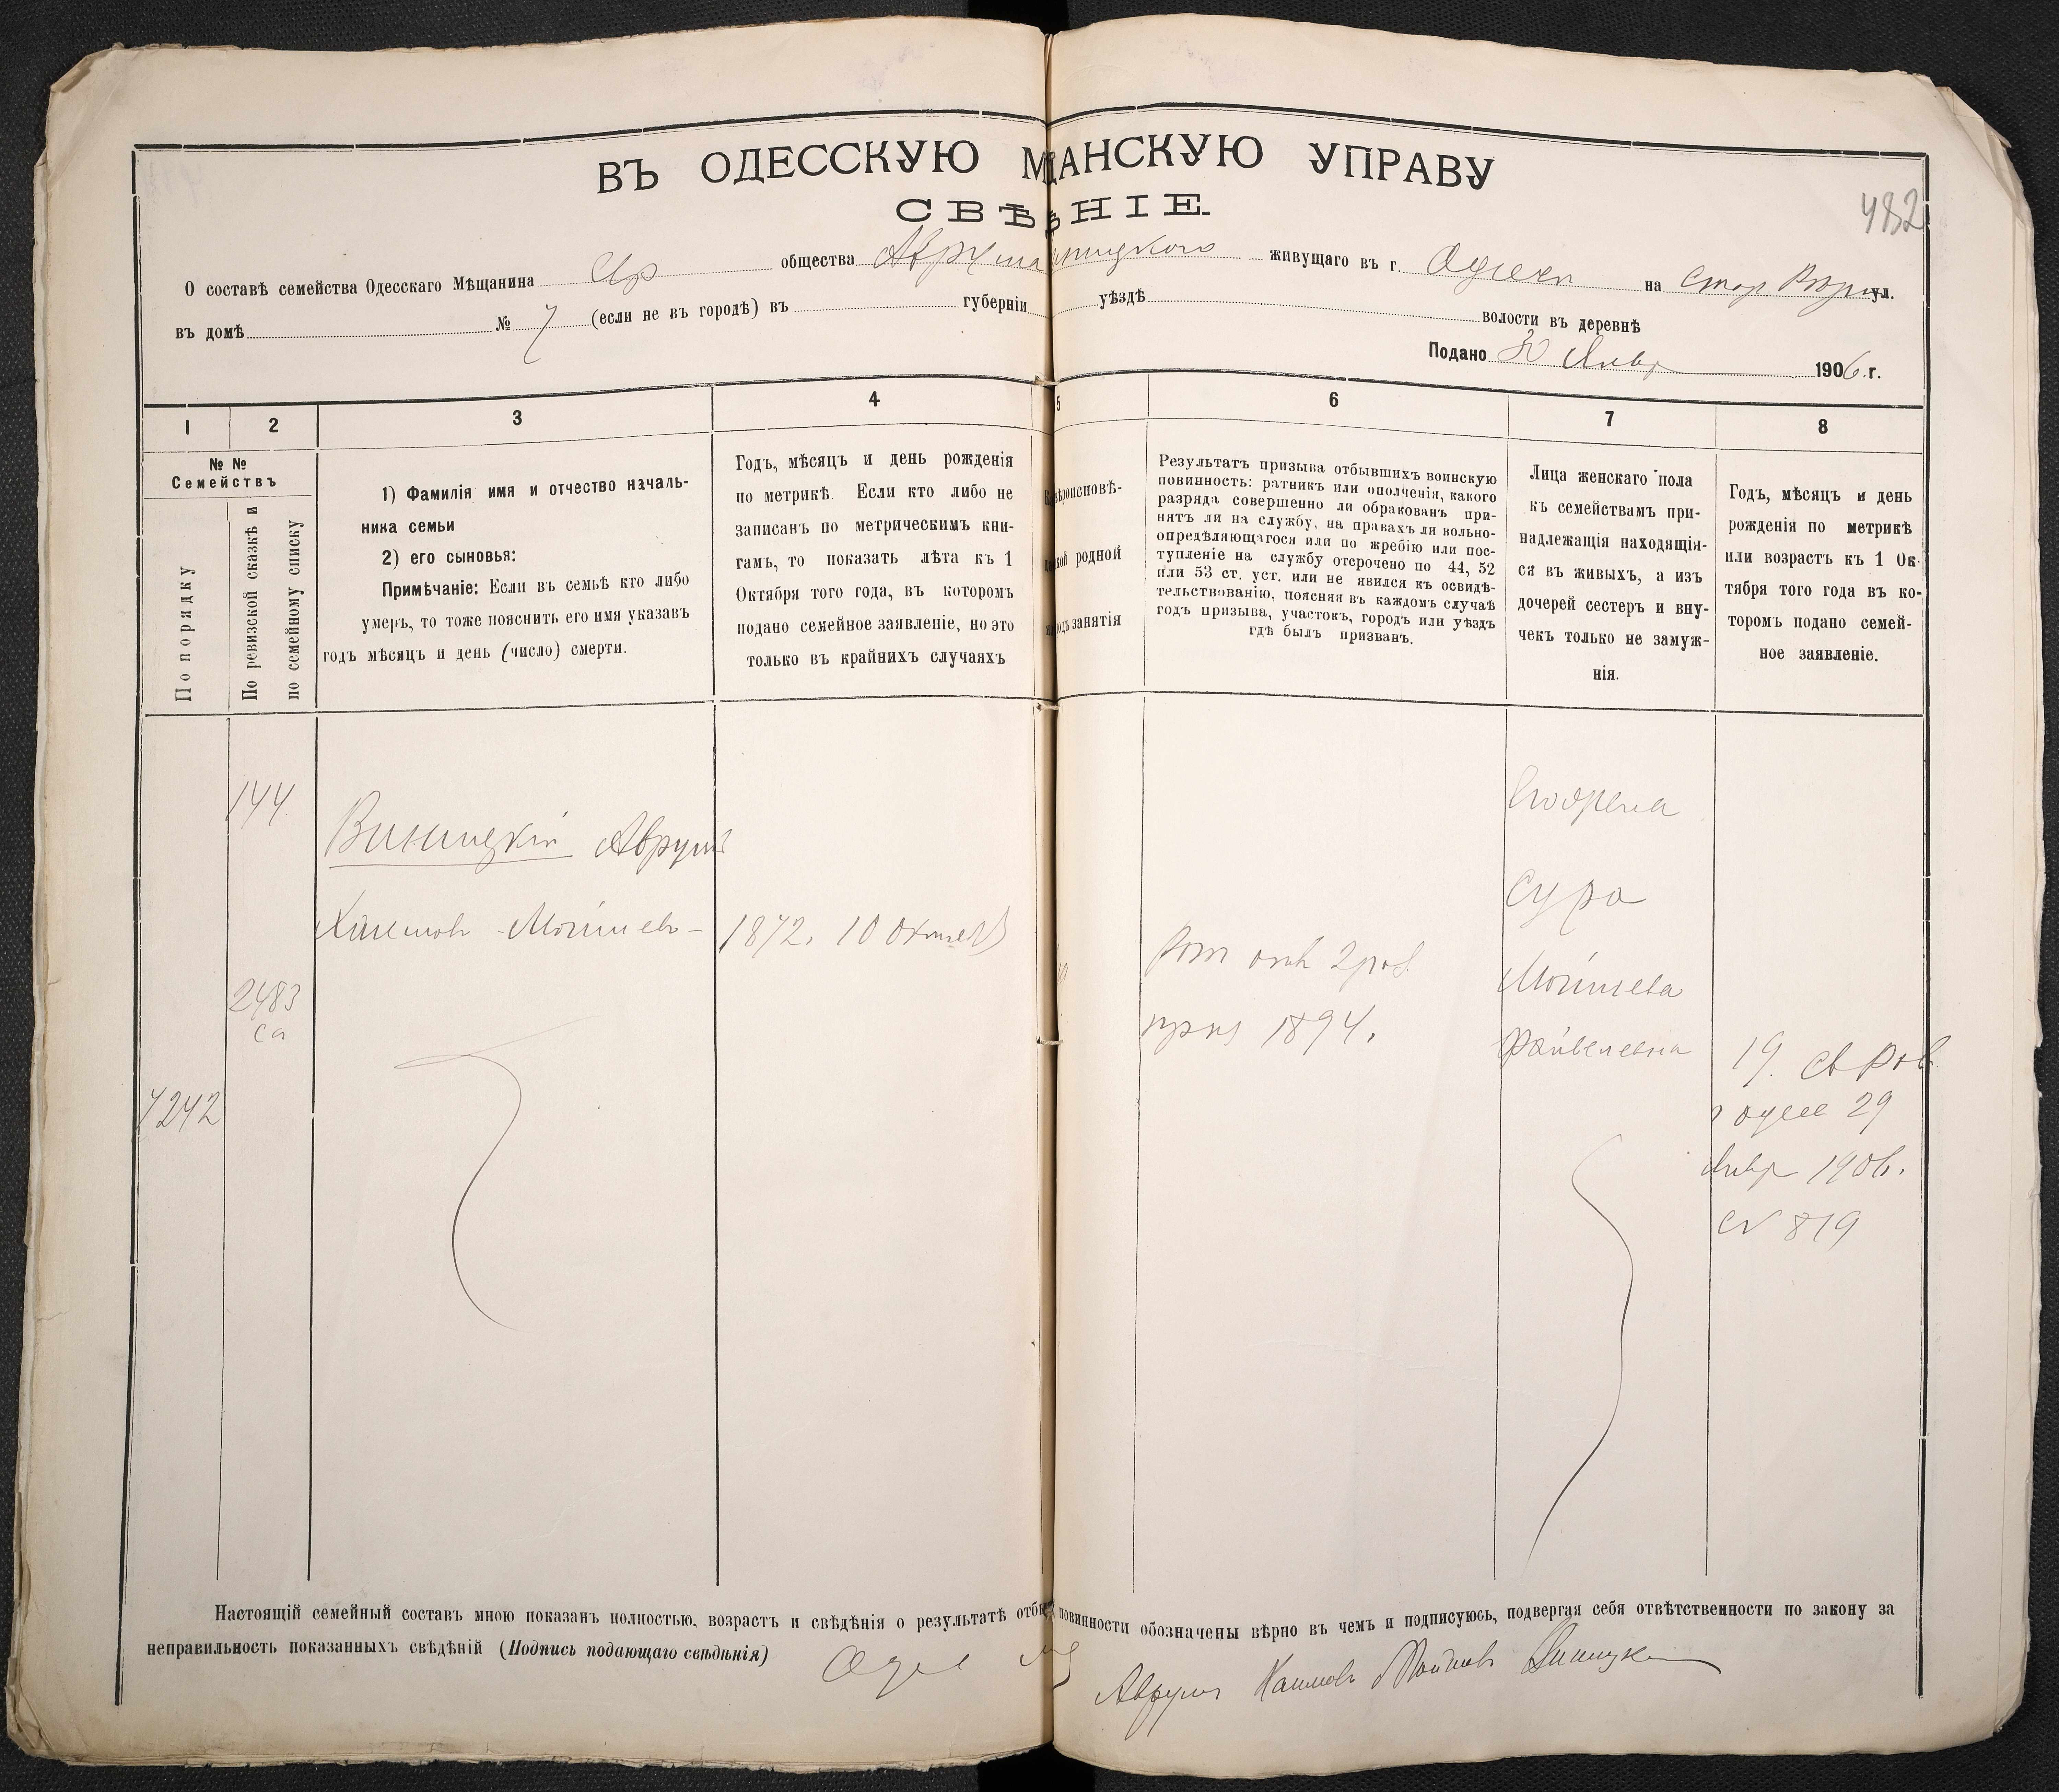 ВЪ ОДЕССКУЮ М ЩАНСКУЮ УПРАВУ
СВѢ НІЕ.
482
О составѣ семейства Одесскаго Мѣщанина общества живущаго въ г. на ул.
въ домѣ № 7 (если не въ городѣ) въ губерніи уѣздѣ волости въ деревнѣ
Подано 30 Янвр 1906 г.
1 2 3 4 5 6 7 8
№ №
Семействъ
По порядку
По ревизской сказкѣ и
по семейному списку
1) Фамилія имя и отчество началь-
ника семьи
2) его сыновья:
Примѣчаніе: Если въ семьѣ кто либо
умеръ, то тоже пояснить его имя указавъ
годъ мѣсяцъ и день (число) смерти.
Годъ, мѣсяцъ и день рожденія
по метрикѣ. Если кто либо не
записанъ по метрическимъ кни-
гамъ, то показать лѣта къ 1
Октября того года, въ которомъ
подано семейное заявленіе, но это
только въ крайнихъ случаяхъ
ѣроисповѣ-
родной
занятія
Результатъ призыва отбывшихъ воинскую
повинность: ратникъ или ополченія, какого
разряда совершенно ли обракованъ при-
нятъ ли на службу, на правахъ ли вольно-
опредѣляющагося или по жребію или пос-
тупленіе на службу отсрочено по 44, 52
или 53 ст. уст. или не явился къ освидѣ-
тельствованію, поясняя въ каждомъ случаѣ
годъ призыва, участокъ, городъ или уѣздъ
гдѣ былъ призванъ.
Лица женскаго пола
къ семействамъ при-
надлежащія находящія-
ся въ живыхъ, а изъ
дочерей сестеръ и вну-
чекъ только не замуж-
нія.
Годъ, мѣсяцъ и день
рожденія по метрикѣ
или возрастъ къ 1 Ок-
тября того года въ ко-
торомъ подано семей-
ное заявленіе.
144
Виницкій Аврумъ
Хаимовъ Мошіневъ
1872. 10
2483
7242
1894.
Сура
Файвелевна
19.
29
Янвр 1906.
№ 819
Настоящій семейный составъ мною показанъ полностью, возрастъ и свѣдѣнія о результатѣ отбы повинности обозначены вѣрно въ чемъ и подписуюсь, подвергая себя отвѣтственности по закону за
неправильность показанныхъ свѣдѣній (Подпись подающаго свѣдѣнія)
Аврумъ Хаимовъ